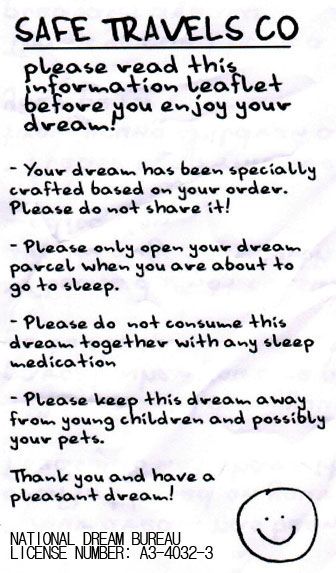 SAFE TRAVELS CO
please read this
information leaflet
before you enjoy your
dream!
- Your dream has been specially
crafted based on your order.
Please do not share it!
- Please only open your dream
parcel when you are about to
go to sleep.
- Please do not consume this
dream together with any sleep
medication
- Please keep this dream away
from young children and possibly
your pets.
Thank you and have a
pleasant dream!
NATIONAL DREAM BUREAU
LICENSE NUMBER: A3-4032-3